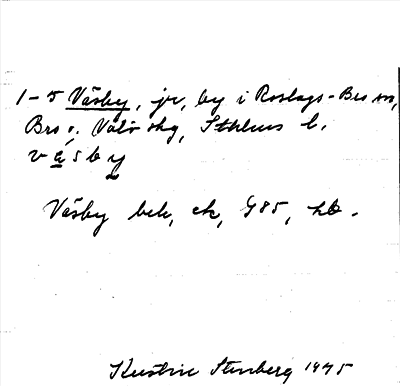 1-5 Väsby, jr, by i Roslags-Bro sn,
Bro o. Vätö skg, Sthlms l.
väsby
Väsby bek, ek, G85, hb.
Kerstin Stenberg 1945